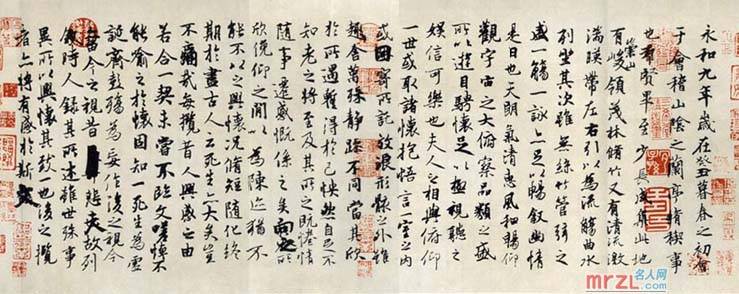 永和九年歲在癸丑暮春之初會
于會稽山陰之蘭亭脩稧事
也羣賢畢至少長咸集此地
有崇山峻領茂林脩竹又有清流激
湍暎帶左右引以為流觴曲水
列坐其次雖無絲竹管弦之
盛一觴一詠亦足以暢敘幽情
是日也天朗氣清惠風和暢仰
觀宇宙之大俯察品類之盛
所以遊目騁懷足以極視聽之
娛信可樂也夫人之相與俯仰
一世或取諸懷抱悟言一室之內
或因寄所託放浪形骸之外雖
趣舍萬殊靜躁不同當其欣
於所遇暫得於己怏然自足不
知老之將至及其所之既惓情
隨事遷感慨係之矣向之所
欣俛仰之閒以為陳迹猶不
能不以之興懷況脩短隨化終
期於盡古人云死生亦大矣豈
不痛哉每攬昔人興感之由
若合一契未嘗不臨文嗟悼不
能喻之於懷固知一死生為虛
誕齊彭殤為妄作後之視今
亦由今之視昔悲夫故列
敘時人錄其所述雖世殊事
異所以興懷其致一也後之攬
者亦將有感於斯文
MRZL名人网.COM